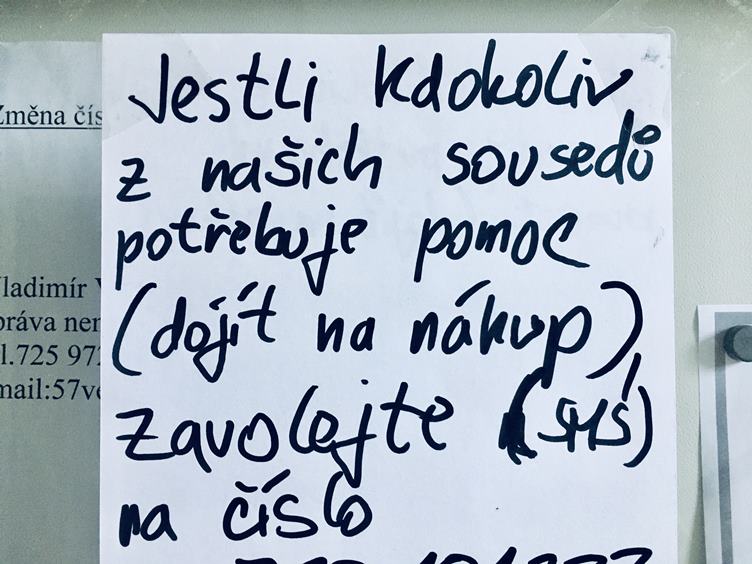 Změna čís
Jestli kdokoliv
z našich sousedů
potřebuje pomoc
(dojít na nákup),
zavolejte (SMS)
na číslo
ladimír V
práva nem
l.725 97
mail:57ve